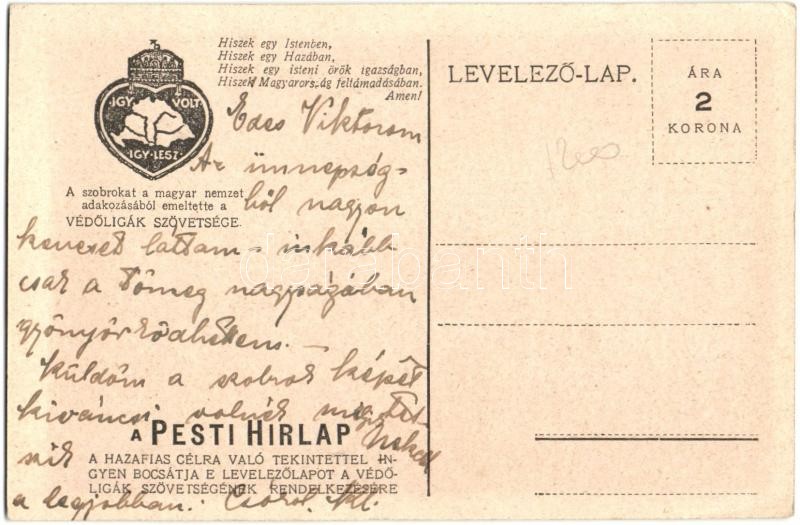 Hiszek egy Istenben,
Hiszek egy Hazában,
Hiszek egy isteni örök igazságban,
Hiszek Magyarország feltámadásában.
Amen!
IGY VOLT
IGY LESZ
A szobrokat a magyar nemzet
adakozásából emeltette a
VÉDŐLIGÁK SZÖVETSÉGE.
Edes Viktorom
Az ünnepség-
ből nagyon
keveset láttam – inkább
csak a tömeg nagyságában
gyönyörködhettem. –
Küldöm a szobrok képét
kiváncsi volnék melyik tet-
szik Neked
a legjobban.
A PESTI HIRLAP
A HAZAFIAS CÉLRA VALÓ TEKINTETTEL IN-
GYEN BOCSÁTJA E LEVELEZŐLAPOT A VÉDŐ-
LIGÁK SZÖVETSÉGÉNEK RENDELKEZÉSÉRE
LEVELEZŐ-LAP.
ÁRA
2
KORONA
darabanth